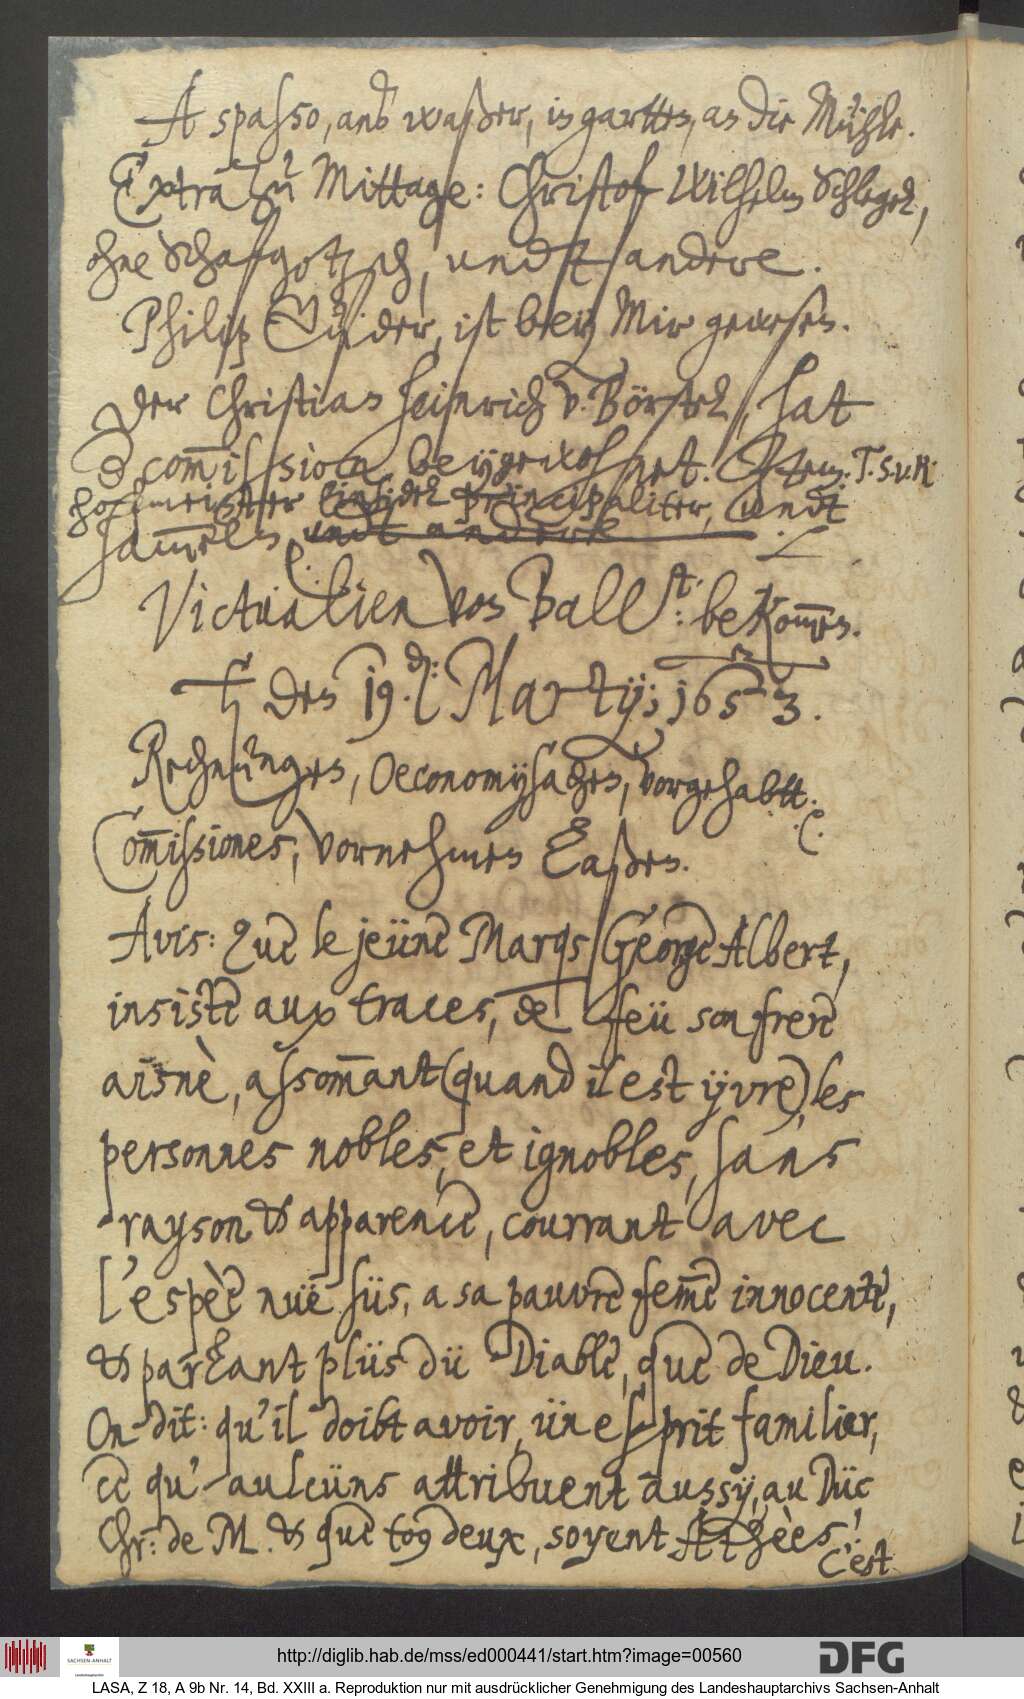 A spasso, ans waßer, in gartten, an die Mühle.
Extra zu Mittage: Christof Wilhelm Schlegel,
ohne Schafgotzsch, undt andere.
Philip Güder, ist bey Mir gewesen.
Der Christian Heinrich v. Börstel, hat
d. com̅ission, beygewohnet. Item: T. S. v. R.
hofmeister Einsidel principaliter, undt
sam̅eln. undt andere
Victualien von Ballst: bekom̅en.
♄ den 19. d: Martij; 1653.
Rechnungen, Oeconomysachen, vorgehabtt.
Com̅issiones, vornehmen laßen. /:
Avis: que le jeüne Marqs George Albert,
insiste aux traces, de feü son frere
aisnè, assom̅ant (quand il est yvre) les
personnes nobles, et ignobles, sans
rayson & apparence, courrant avec
l'espèe nuë süs, a sa pauvre fem̅e innocente,
& parlant plüs dü Diable, que de Dieu.
On dit: qu'il doibt avoir, ün esprit familier,
ce qu'aulcüns attribuent aussy, au Düc
Chr: de M. & que to9 deux, soyent Athèes!
C'est
http://diglib.hab.de/mss/ed000441/start.htm?image=00560
SACHSEN-ANHALT
Landeshauptarchiv
DFG
LASA, Z 18, A 9b Nr. 14, Bd. XXIII a. Reproduktion nur mit ausdrücklicher Genehmigung des Landeshauptarchivs Sachsen-Anhalt